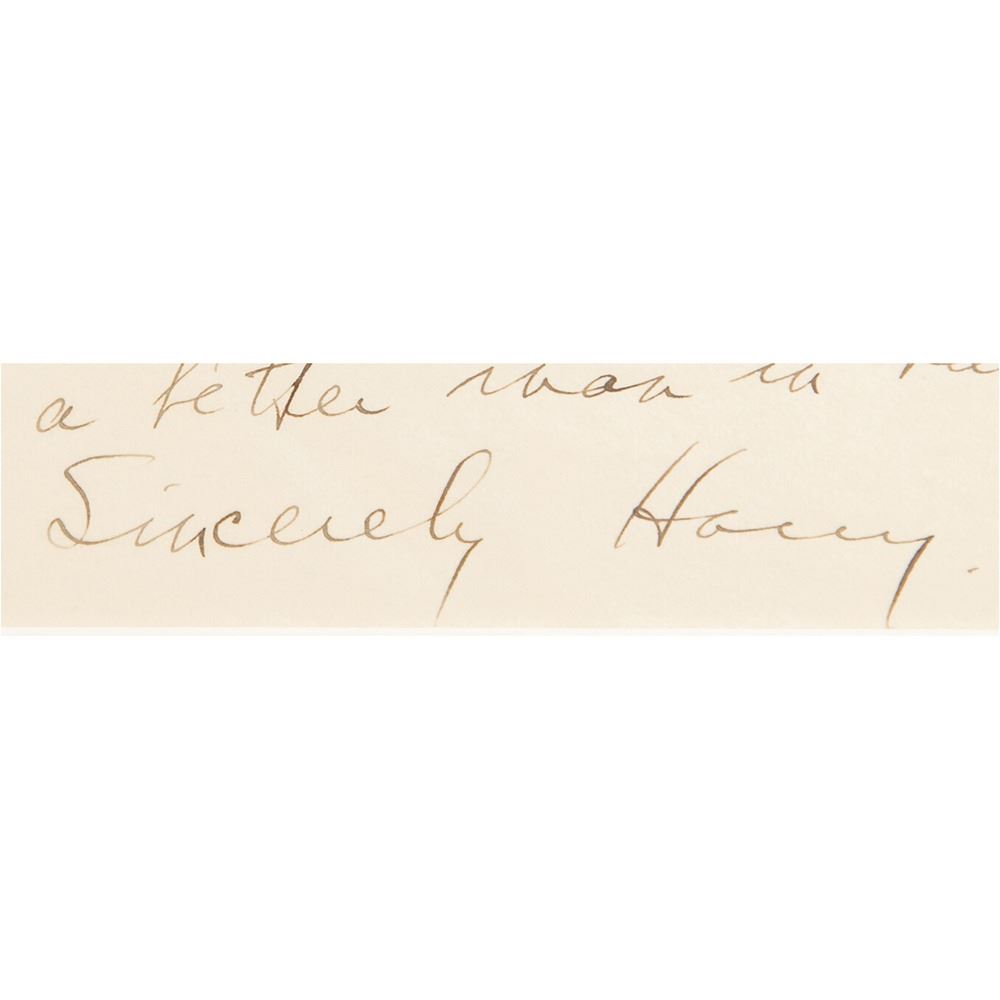 a better man in
Sincerely Harry.